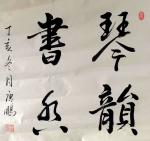 琴韻
書香
丁亥冬月